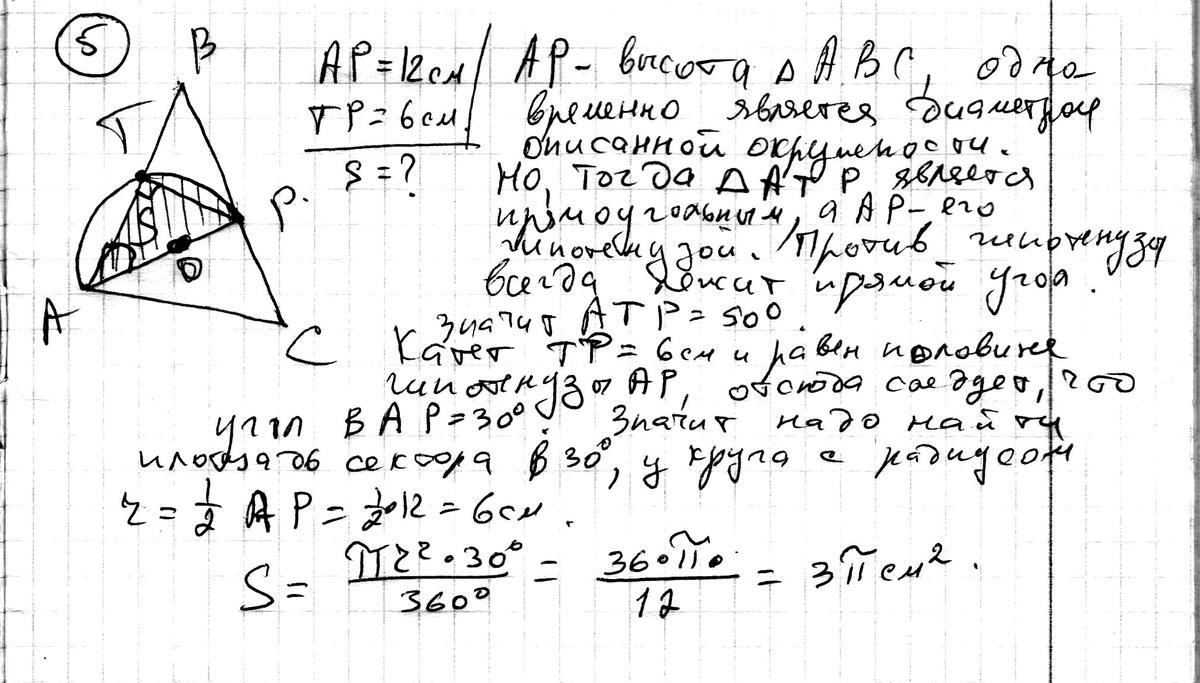 5
B
T
P.
S
O
A
C
AP=12см
TP=6см.
S=?
AP- высота △ABC, одно-
временно является диаметром
описанной окружности.
Но, тогда △ATP является
прямоугольным, а AP- его
гипотенузой. Против гипотенузы
всегда лежит прямой угол.
Значит ATP=90°.
Катет TP=6см и равен половине
гипотенузы AP, отсюда следует, что
угол BAP=30°. Значит надо найти
площадь сектора в 30°, у круга с радиусом
r = 1/2 AP = 1/2·12 = 6см.
S = πr²·30°/360° = 36·π·/12 = 3π см².